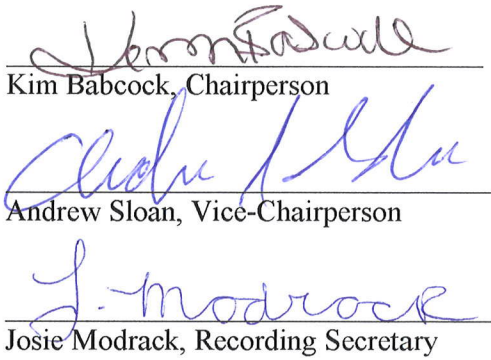 Kim Babcock
Kim Babcock, Chairperson
Andrew Sloan
Andrew Sloan, Vice-Chairperson
J. Modrock
Josie Modrack, Recording Secretary